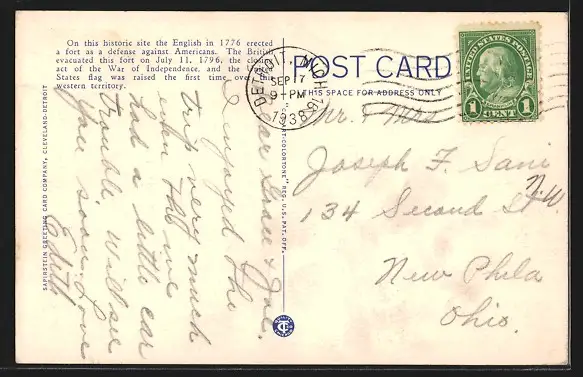 On this historic site the English in 1776 erected
a fort as a defense against Americans. The British
evacuated this fort on July 11, 1796, the closing
act of the War of Independence, and the United
States flag was raised for the first time over the
western territory.
POST CARD
THIS SPACE FOR ADDRESS ONLY
DETROIT, MICH.
SEP 17
9-PM
1938
UNITED STATES POSTAGE
FRANKLIN
1 CENT 1
SAPIRSTEIN GREETING CARD COMPANY, CLEVELAND-DETROIT
ART-COLORTONE" REG. U.S. PAT. OFF.
Dear Grace & Joe.
I enjoyed the
trip very much
even tho we
had a little car
trouble will see
you soon. Love
Edith
Mr. & Mrs
Joseph F. Sani
134 Second St N.W.
New Phila
Ohio.